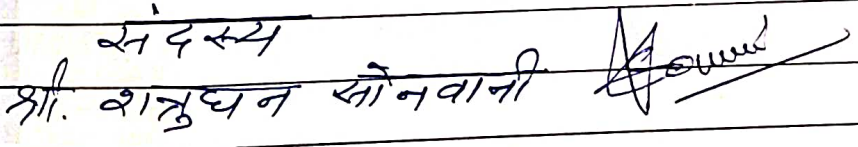 संदस्य
श्री. शत्रुघन सोनवानी